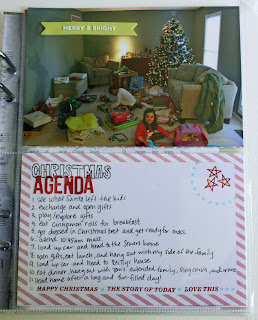 MERRY & BRIGHT
CHRISTMAS
AGENDA
1. see what Santa left the kids
2. exchange and open gifts
3. play/explore gifts
4. eat cinnamon rolls for breakfast
5. get dressed in Christmas best and get ready for mass
6. attend 10:45am mass
7. load up car and head to the Stuart house
8. open gifts, eat lunch, and hang out with my side of the family
9. load up car and head to Terry's house
10. eat dinner, hang out with Tom's extended family, sing carols, and more
11. head home after a long and fun-filled day!
HAPPY CHRISTMAS THE STORY OF TODAY LOVE THIS